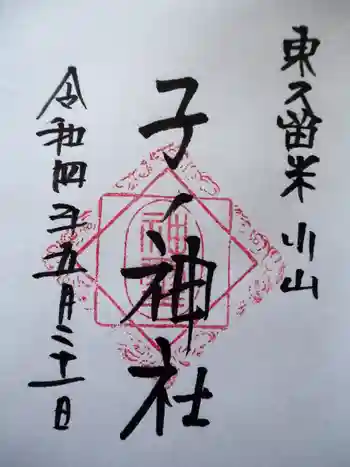 東久留米 小山
子ノ神社
令和四年五月二十一日